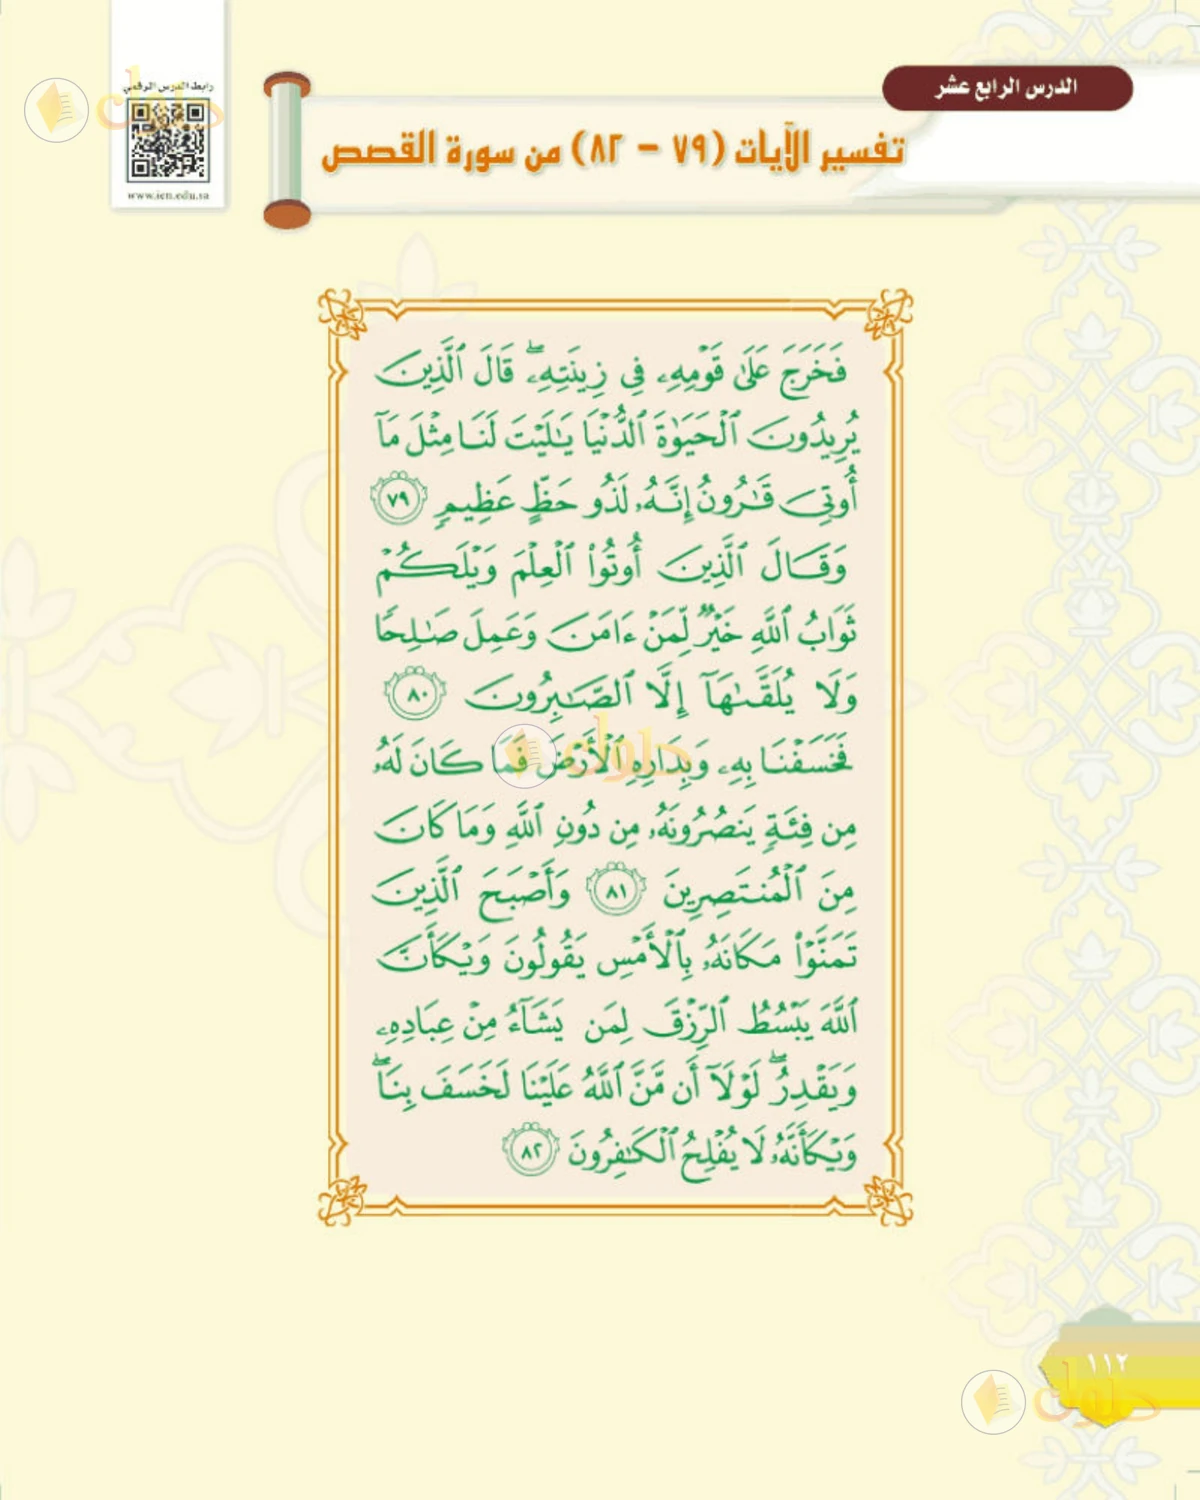 رابط الدرس الرقمي
www.ien.edu.sa
الدرس الرابع عشر
تفسير الآيات (٧٩ – ٨٢) من سورة القصص
فَخَرَجَ عَلَىٰ قَوْمِهِۦ فِي زِينَتِهِۦۖ قَالَ ٱلَّذِينَ
يُرِيدُونَ ٱلْحَيَوٰةَ ٱلدُّنْيَا يَٰلَيْتَ لَنَا مِثْلَ مَآ
أُوتِيَ قَٰرُونُ إِنَّهُۥ لَذُو حَظٍّ عَظِيمٍ ٧٩
وَقَالَ ٱلَّذِينَ أُوتُوا۟ ٱلْعِلْمَ وَيْلَكُمْ
ثَوَابُ ٱللَّهِ خَيْرٌ لِّمَنْ ءَامَنَ وَعَمِلَ صَٰلِحًا
وَلَا يُلَقَّىٰهَآ إِلَّا ٱلصَّٰبِرُونَ ٨٠
فَخَسَفْنَا بِهِۦ وَبِدَارِهِ ٱلْأَرْضَ فَمَا كَانَ لَهُۥ
مِن فِئَةٍ يَنصُرُونَهُۥ مِن دُونِ ٱللَّهِ وَمَا كَانَ
مِنَ ٱلْمُنتَصِرِينَ ٨١ وَأَصْبَحَ ٱلَّذِينَ
تَمَنَّوْا۟ مَكَانَهُۥ بِٱلْأَمْسِ يَقُولُونَ وَيْكَأَنَّ
ٱللَّهَ يَبْسُطُ ٱلرِّزْقَ لِمَن يَشَآءُ مِنْ عِبَادِهِۦ
وَيَقْدِرُۖ لَوْلَآ أَن مَّنَّ ٱللَّهُ عَلَيْنَا لَخَسَفَ بِنَاۖ
وَيْكَأَنَّهُۥ لَا يُفْلِحُ ٱلْكَٰفِرُونَ ٨٢
١١٢
حلول
حلول
حلول